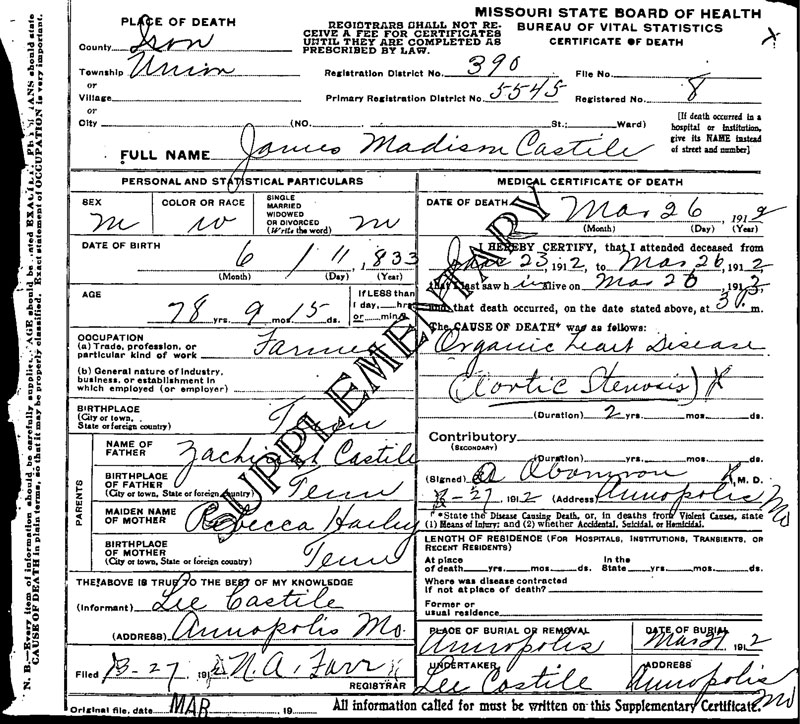 MISSOURI STATE BOARD OF HEALTH
BUREAU OF VITAL STATISTICS
CERTIFICATE OF DEATH
PLACE OF DEATH
REGISTRARS SHALL NOT RECEIVE A FEE FOR CERTIFICATES UNTIL THEY ARE COMPLETED AS PRESCRIBED BY LAW.
County Iron
Township Union
or
Village
or
City (NO. St.; Ward)
Registration District No. 390 File No.
Primary Registration District No. 5545 Registered No. 8
[If death occurred in a
hospital or institution,
give its NAME instead
of street and number]
FULL NAME James Madison Castile
PERSONAL AND STATISTICAL PARTICULARS
SEX
m
COLOR OR RACE
w
SINGLE
MARRIED
WIDOWED
OR DIVORCED
(Write the word)
m
DATE OF BIRTH
6 / 11, 1833
(Month) (Day) (Year)
AGE
78 yrs. 9 mos. 15 ds.
If LESS than
1 day, hrs.
or min.?
OCCUPATION
(a) Trade, profession, or
particular kind of work Farmer
(b) General nature of industry,
business, or establishment in
which employed (or employer)
BIRTHPLACE
(City or town,
State or foreign country) Tenn
PARENTS
NAME OF
FATHER Castile
BIRTHPLACE
OF FATHER
(City or town, State or foreign country) Tenn
MAIDEN NAME
OF MOTHER Rebecca
BIRTHPLACE
OF MOTHER
(City or town, State or foreign country) Tenn
THE ABOVE IS TRUE TO THE BEST OF MY KNOWLEDGE
(Informant) Lee Castile
(ADDRESS) Annopolis Mo.
Filed 3-27 191 N.A. Farr
REGISTRAR
Original file, date MAR 19
MEDICAL CERTIFICATE OF DEATH
DATE OF DEATH Mar 26, 1912
(Month) (Day) (Year)
I HEREBY CERTIFY, that I attended deceased from
23, 1912, to Mar 26, 1912,
that I last saw him alive on Mar 26, 191
and that death occurred, on the date stated above, at 3 m.
The CAUSE OF DEATH* was as follows:
Organic heart Disease
(Aortic Stenosis)
(Duration) 2 yrs. mos. ds.
Contributory
(SECONDARY)
(Duration) yrs. mos. ds.
(Signed) M. D.
3-27 1912 (Address) Annopolis Mo
*State the Disease Causing Death, or, in deaths from Violent Causes, state
(1) Means of Injury; and (2) whether Accidental, Suicidal, or Homicidal.
LENGTH OF RESIDENCE (FOR HOSPITALS, INSTITUTIONS, TRANSIENTS, OR
RECENT RESIDENTS)
At place
of death yrs. mos. ds.
In the
State yrs. mos. ds.
Where was disease contracted
if not at place of death?
Former or
usual residence
PLACE OF BURIAL OR REMOVAL
Annopolis
DATE OF BURIAL
Mar 27 1912
UNDERTAKER
Lee Castile
ADDRESS
Annopolis Mo
All information called for must be written on this Supplementary Certificate.
SUPPLEMENTARY
N. B.—Every item of information should be carefully supplied. AGE should be stated EXACTLY. should state
CAUSE OF DEATH in plain terms, so that it may be properly classified. Exact statement of OCCUPATION is very important.